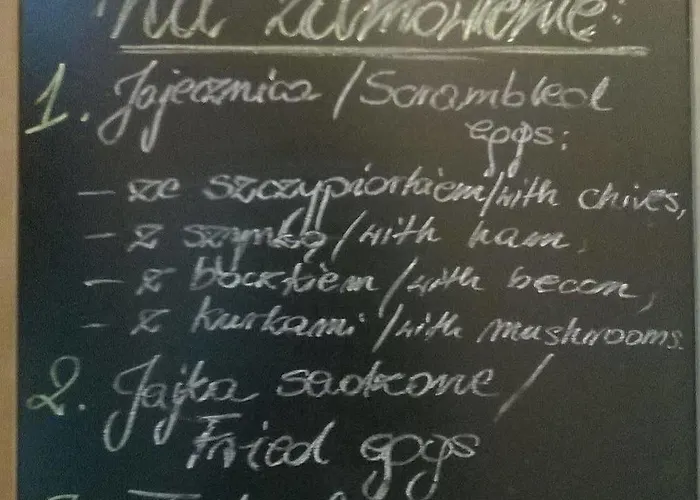 na zamówienie:
1. Jajecznica / Scrambled
eggs:
- ze szczypiorkiem/with chives,
- z szynką/with ham,
- z boczkiem/with becon,
- z kurkami/with mushrooms.
2. Jajka sadzone/
Fried eggs